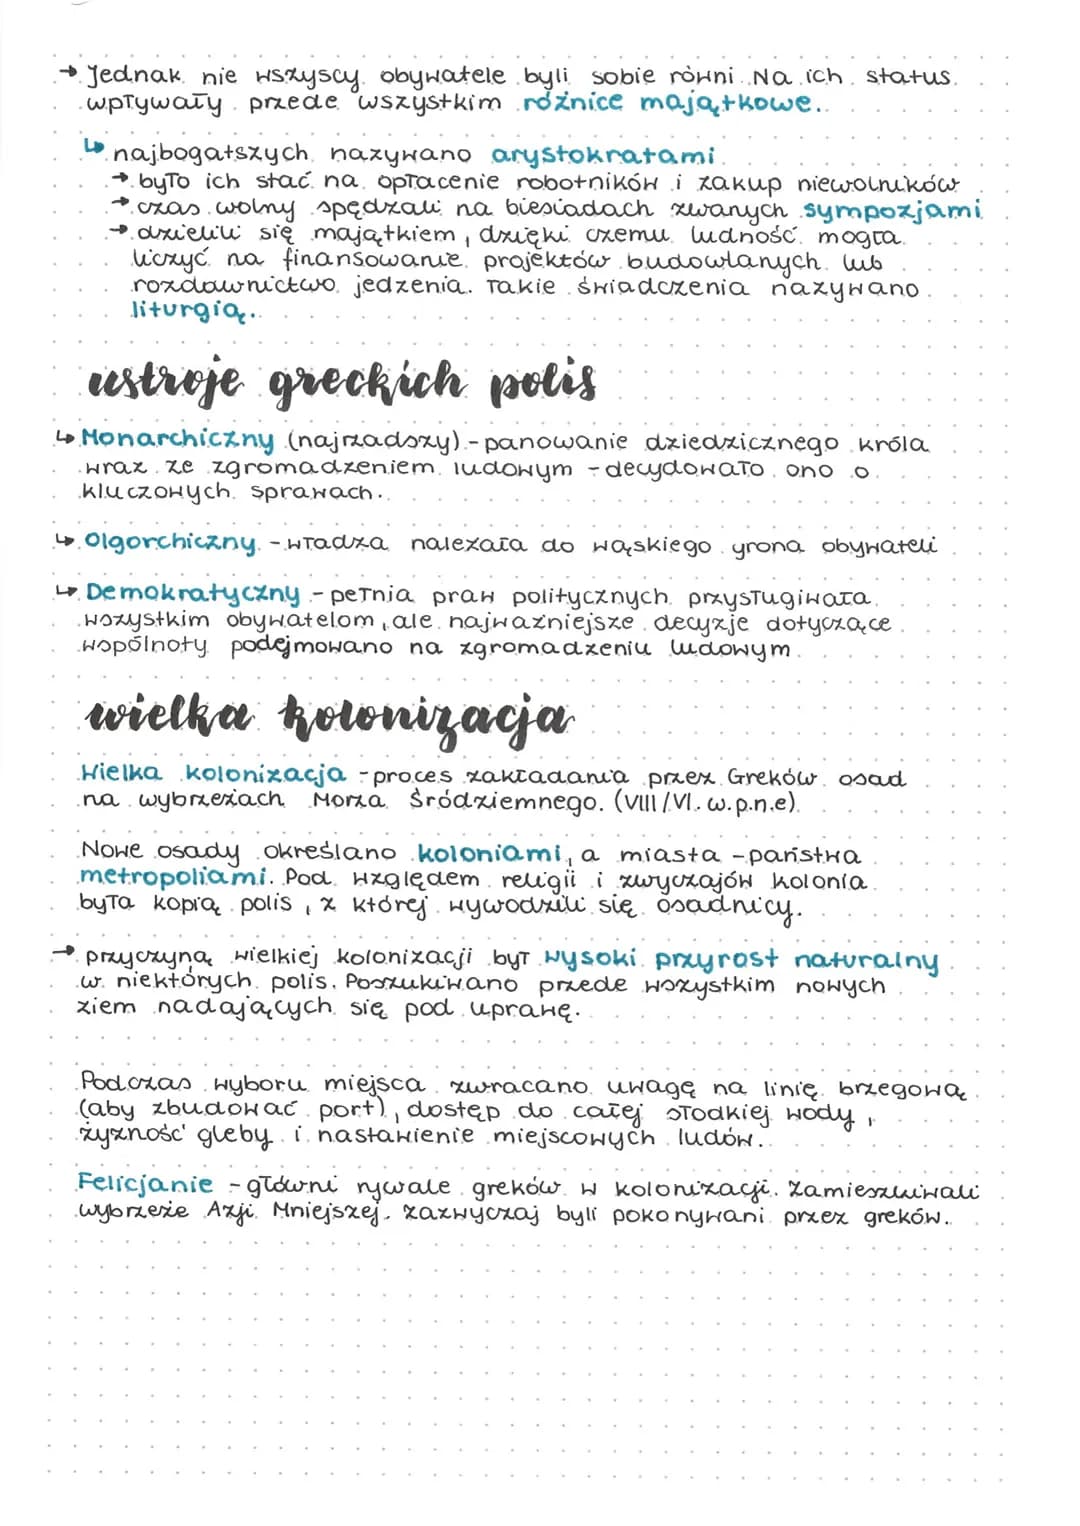 → Jednak nie wszyscy obywatele byli sobie równi. Na ich status
wpływały przede wszystkim różnice majątkowe.
↳ najbogatszych nazywano arystokratami
→ było ich stać na opłacenie robotników i zakup niewolników
→ czas wolny spędzali na biesiadach zwanych sympozjami
→ dzielili się majątkiem, dzięki czemu ludność mogła
liczyć na finansowanie projektów budowlanych lub
rozdawnictwo jedzenia. Takie świadczenia nazywano
liturgią.
ustroje greckich polis
↳ Monarchiczny (najrzadszy) - panowanie dziedzicznego króla
wraz ze zgromadzeniem ludowym - decydowało ono o
kluczowych sprawach.
↳ Olgorchiczny - władza należała do wąskiego grona obywateli
↳ Demokratyczny - pełnia praw politycznych przysługiwała
wszystkim obywatelom, ale najważniejsze decyzje dotyczące
wspólnoty podejmowano na zgromadzeniu ludowym
wielka kolonizacja
Wielka kolonizacja - proces zakładania przez Greków osad
na wybrzeżach Morza Śródziemnego. (VIII/VI. w.p.n.e)
Nowe osady określano koloniami, a miasta - państwa
metropoliami. Pod względem religii i zwyczajów kolonia
była kopią polis, z której wywodzili się osadnicy.
→ przyczyną wielkiej kolonizacji był wysoki przyrost naturalny
w niektórych polis. Poszukiwano przede wszystkim nowych
ziem nadających się pod uprawę.
Podczas wyboru miejsca zwracano uwagę na linię brzegową
(aby zbudować port), dostęp do całej słodkiej wody,
żyzność gleby i nastawienie miejscowych ludów.
Felicjanie - główni rywale greków w kolonizacji. Zamieszkiwali
wybrzeże Azji Mniejszej. zazwyczaj byli pokonywani przez greków.